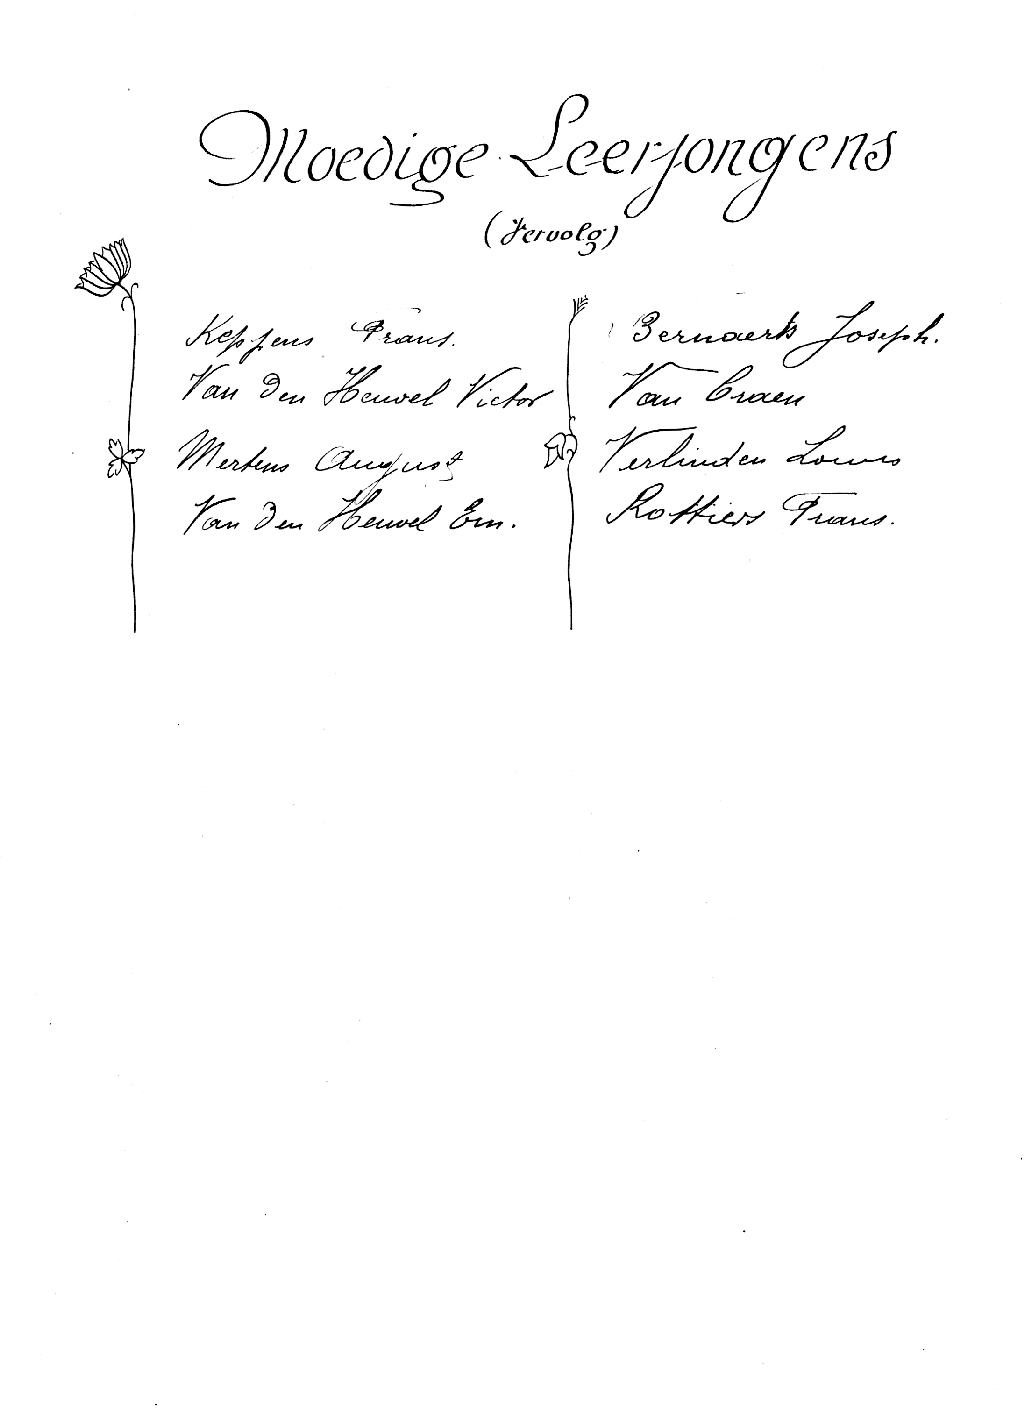 Moedige Leerjongens
(Vervolg)
Keppens Frans.
Van den Heuvel Victor
Mertens August
Van den Heuvel Em.
Bernaerts Joseph.
Van Craen
Verlinden Louis
Rottiers Frans.